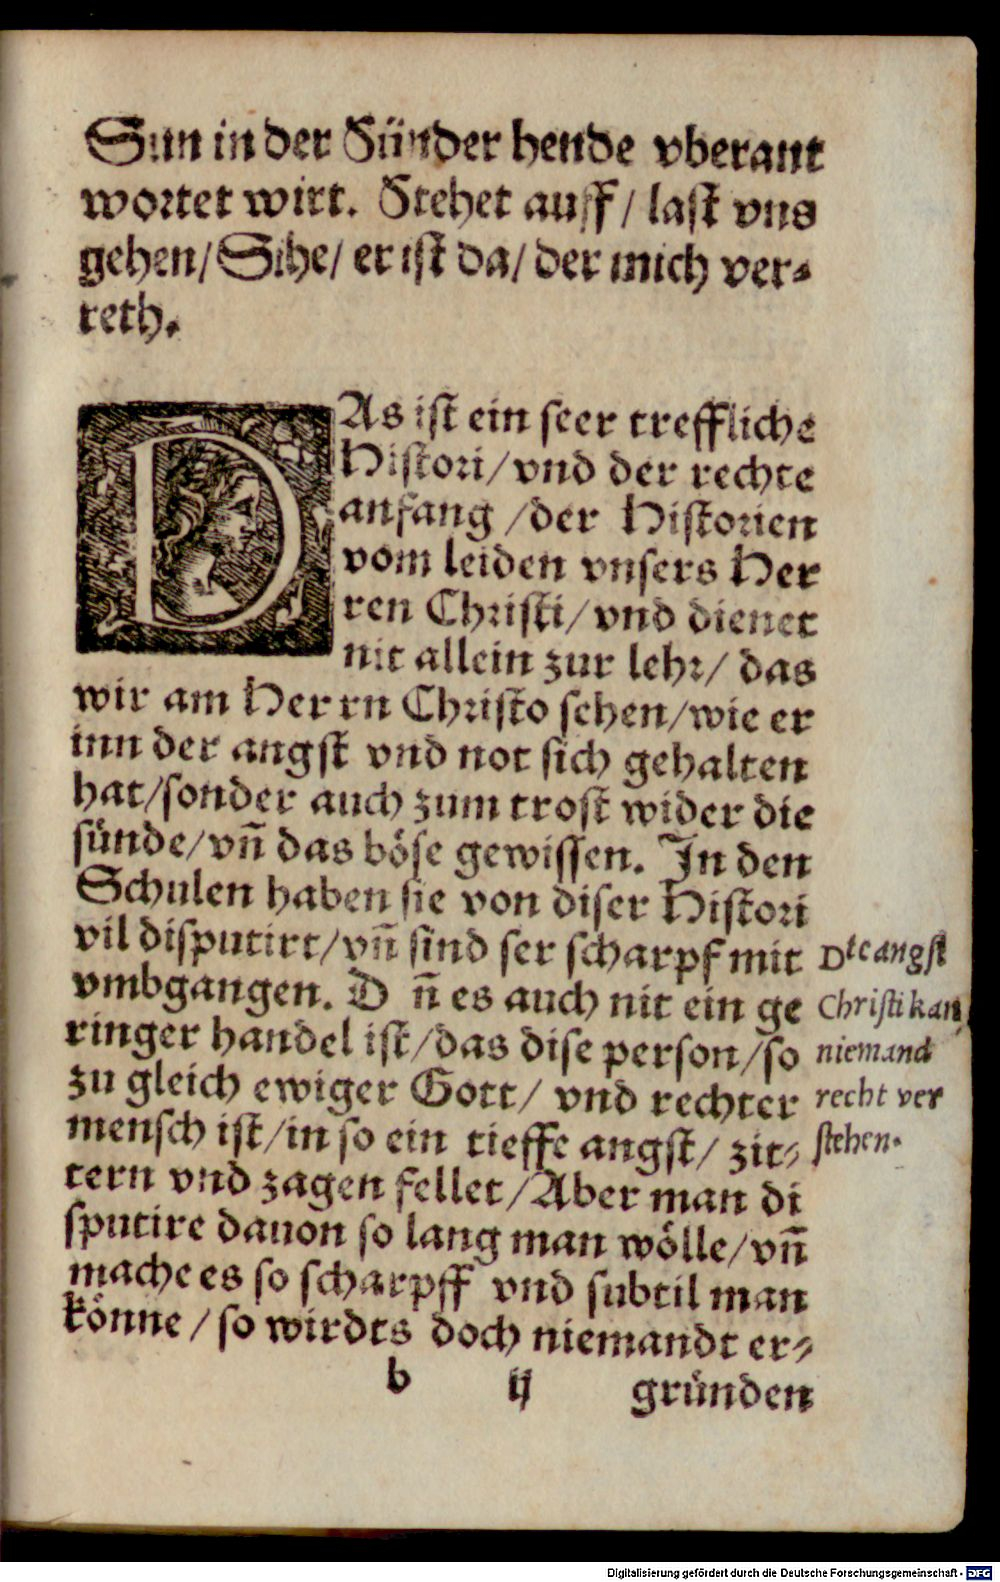 Sun in der Sünder hende vberant
wortet wirt. Stehet auff / last vns
gehen/Sihe/ er ist da/ der mich ver-
reth.
DAs ist ein seer treffliche
Histori/ vnd der rechte
anfang /der Historien
vom leiden vnsers Her
ren Christi/ vnd dienet
nit allein zur lehr/ das
wir am Herrn Christo sehen/wie er
inn der angst vnd not sich gehalten
hat/sonder auch zum trost wider die
sünde/vñ das böse gewissen. In den
Schulen haben sie von diser Histori
vil disputirt/vñ sind ser scharpf mit
vmbgangen. D ñ es auch nit ein ge
ringer handel ist/das dise person/so
zu gleich ewiger Gott/ vnd rechter
mensch ist/in so ein tieffe angst/ zit-
tern vnd zagen fellet/Aber man di
sputire dauon so lang man wölle/vñ
mache es so scharpff vnd subtil man
könne/so wirdts doch niemandt er-
b ij gründen
Die angst
Christi kan
niemand
recht ver
stehen.
Digitalisierung gefördert durch die Deutsche Forschungsgemeinschaft - DFG